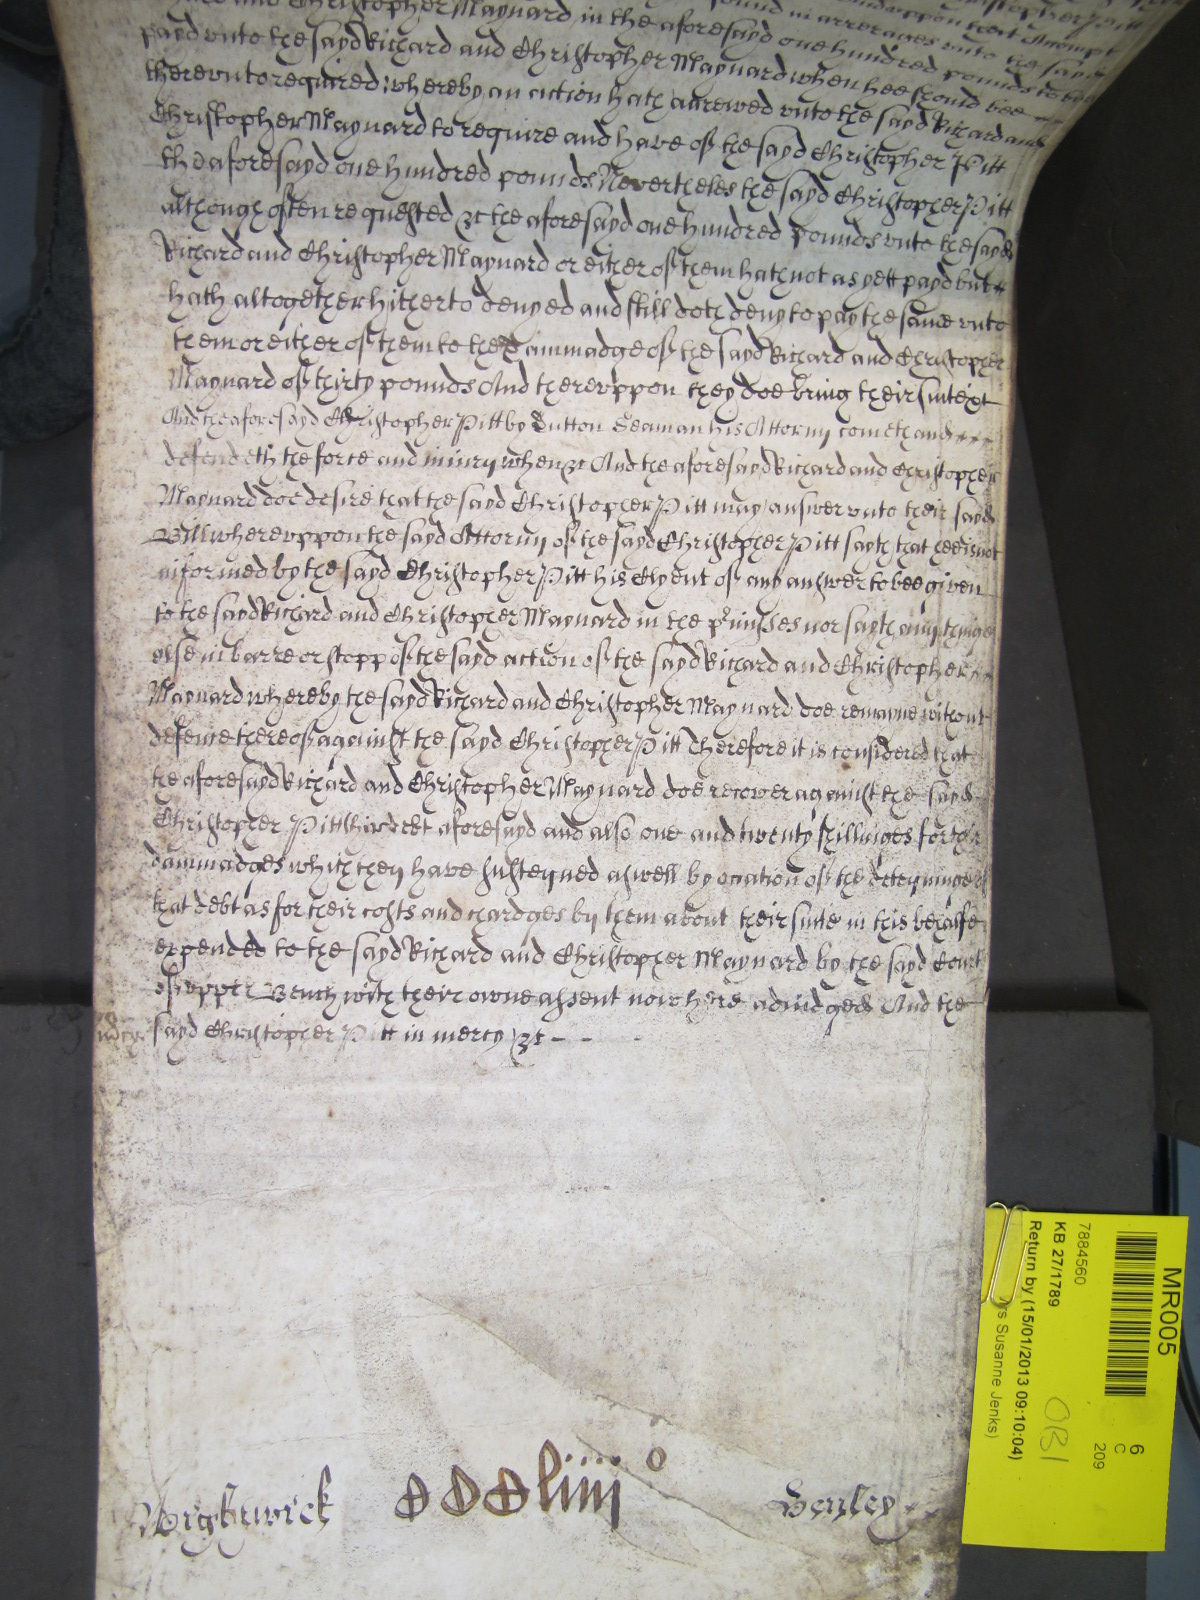 and Christopher Maynard in the aforesayd one hundred pounds to bee
payd vnto the sayd Richard and Christopher Maynard when hee should bee
therevnto required; whereby an action hath accrewed vnto the sayd Richard and
Christopher Maynard to require and have of the sayd Christopher Pitt
the aforesayd one hundred pounds Nevertheles the sayd Christopher Pitt
although often requested &c the aforesayd one hundred pounds vnto the sayd
Richard and Christopher Maynard or either of them hath not as yett payd but
hath altogether hitherto denyed and still doth deny to pay the same vnto
them or either of them to the dammadge of the sayd Richard and Christopher
Maynard of thirty pounds And therevppon they doe bring their suite &c
And the aforesayd Christopher Pitt by Dutton Seaman his Attorny cometh and
defendeth the force and iniury when &c And the aforesayd Richard and Christopher
Maynard doe desire that the sayd Christopher Pitt may answer vnto their sayd
Bill wherevppon the sayd Attorny of the sayd Christopher Pitt sayth that hee is not
informed by the sayd Christopher Pitt his Clyent of any answer to bee given
to the sayd Richard and Christopher Maynard in the p'misses nor sayth any thinge
else in barre or stopp of the sayd action of the sayd Richard and Christopher
Maynard whereby the sayd Richard and Christopher Maynard doe remayne without
defence thereof against the sayd Christopher Pitt Therefore it is considered that
the aforesayd Richard and Christopher Maynard doe recover against the sayd
Christopher Pitt their debt aforesayd and also one and twenty shillinges for their
dammadges which they have susteyned aswell by ocation of the deteyninge
that debt as for their costs and chardges by them about their suite in this behalfe
expended to the sayd Richard and Christopher Maynard by the sayd Court
of vpper Bench with their owne assent now here adiudged And the
sayd Christopher Pitt in mercy &c
Wightwick
Henley
MR005
6
C
209
7884560
KB 27/1789
Return by (15/01/2013 09:10:04)
Susanne Jenks)